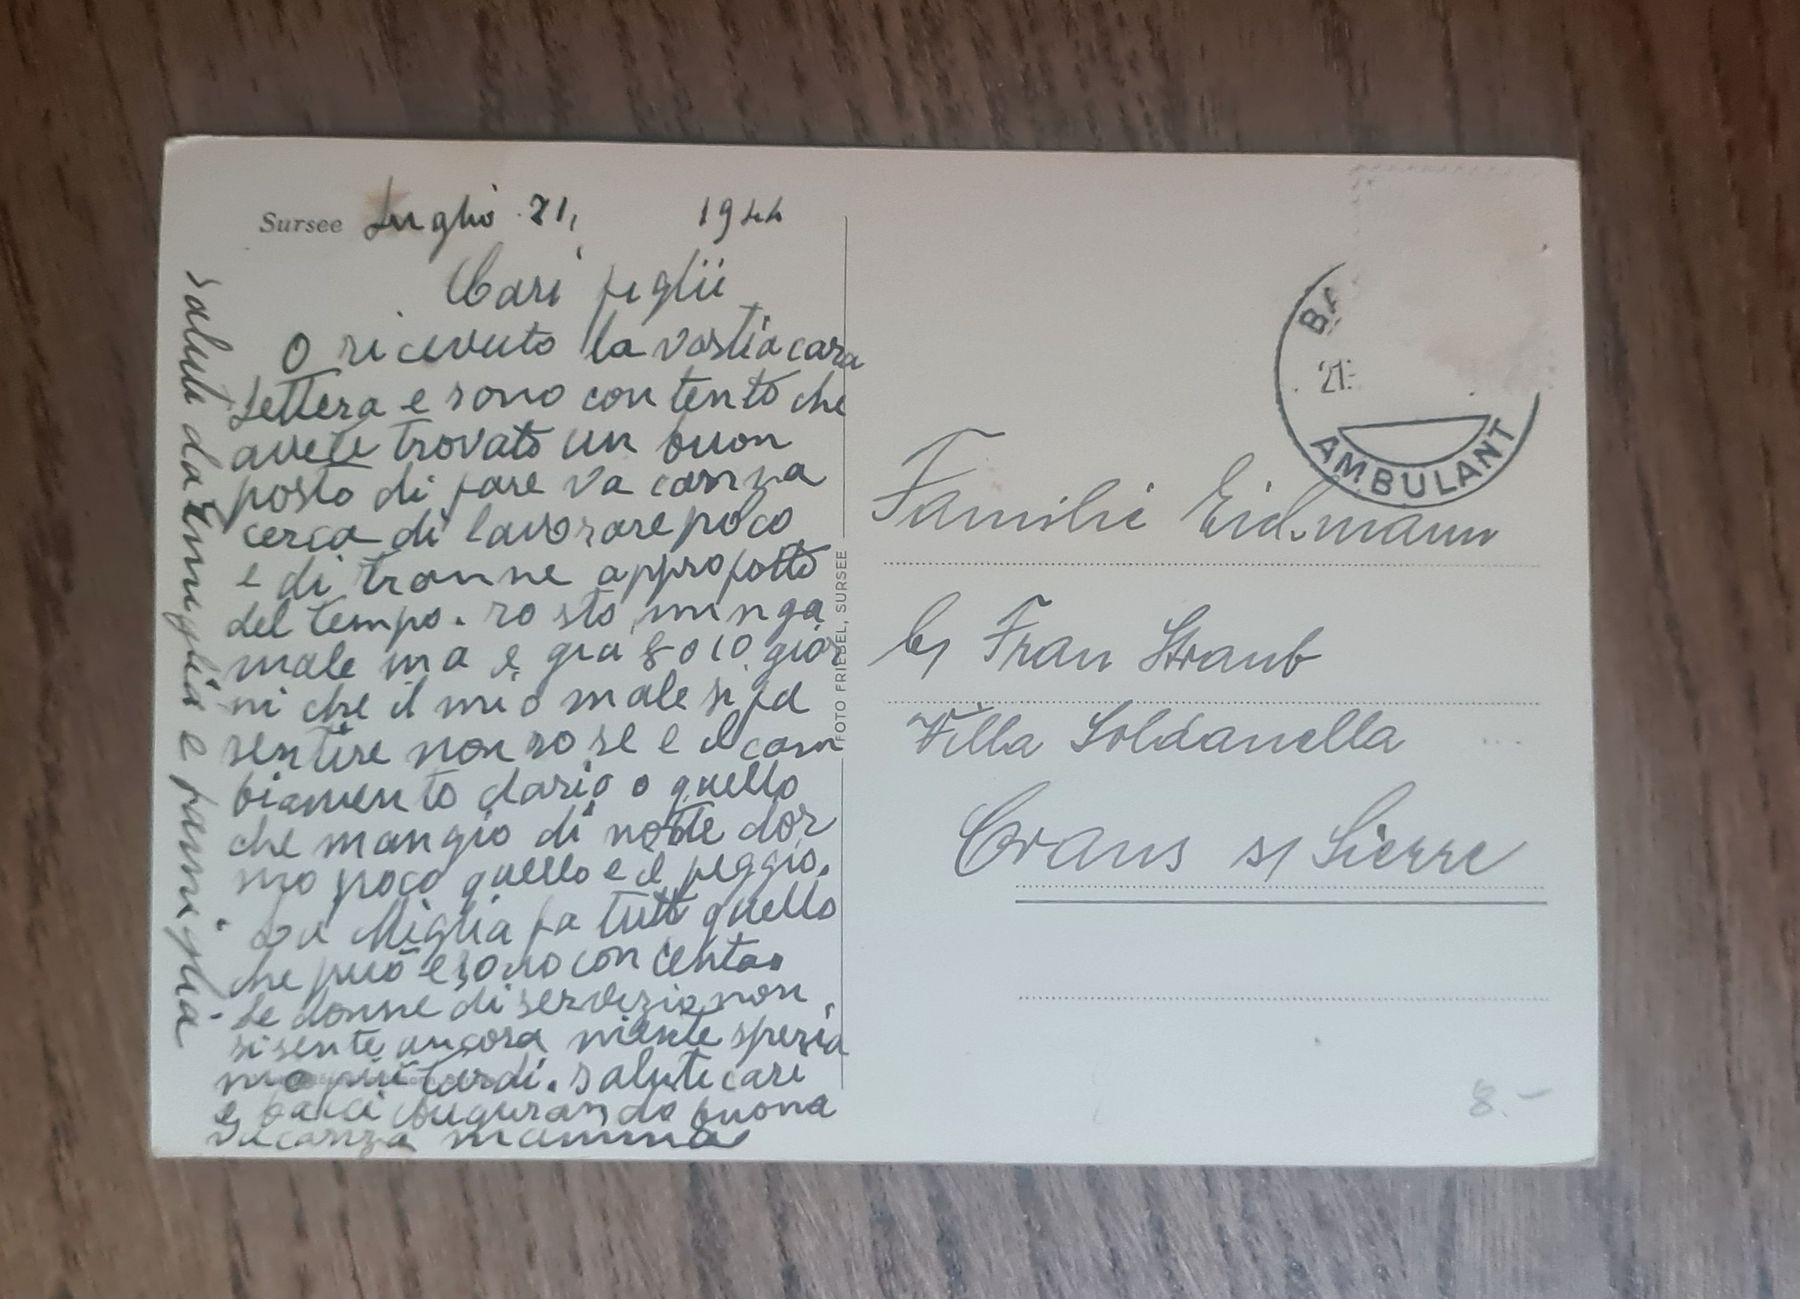 Sursee Luglio 21, 1944
Cari figlii
O ricevuto la vostra cara
Lettera e sono contento che
avete trovato un buon
posto di fare va canza
cerca di lavorare poco
e di tranne approfotto
del tempo. Io sto minga
male ma e gia 8 o 10 gior
ni che il mio male si fa
sentire non so se e il cam
biamento daria o quello
che mangio di notte dor
mo poco quello e il peggio.
La Miglia fa tutt quello
che può e sono contenta
Le donne di servizio non
si sente ancora niente speria
mo più tardi. saluti cari
e baci Augurando buona
vacanza mamma
saluti da Emiglia e famiglia
FOTO FRIEBEL, SURSEE
BA
21.
AMBULANT
Familie Eidmann
b/ Frau Straub
Villa Soldanella
Crans s/ Sierre
8.-